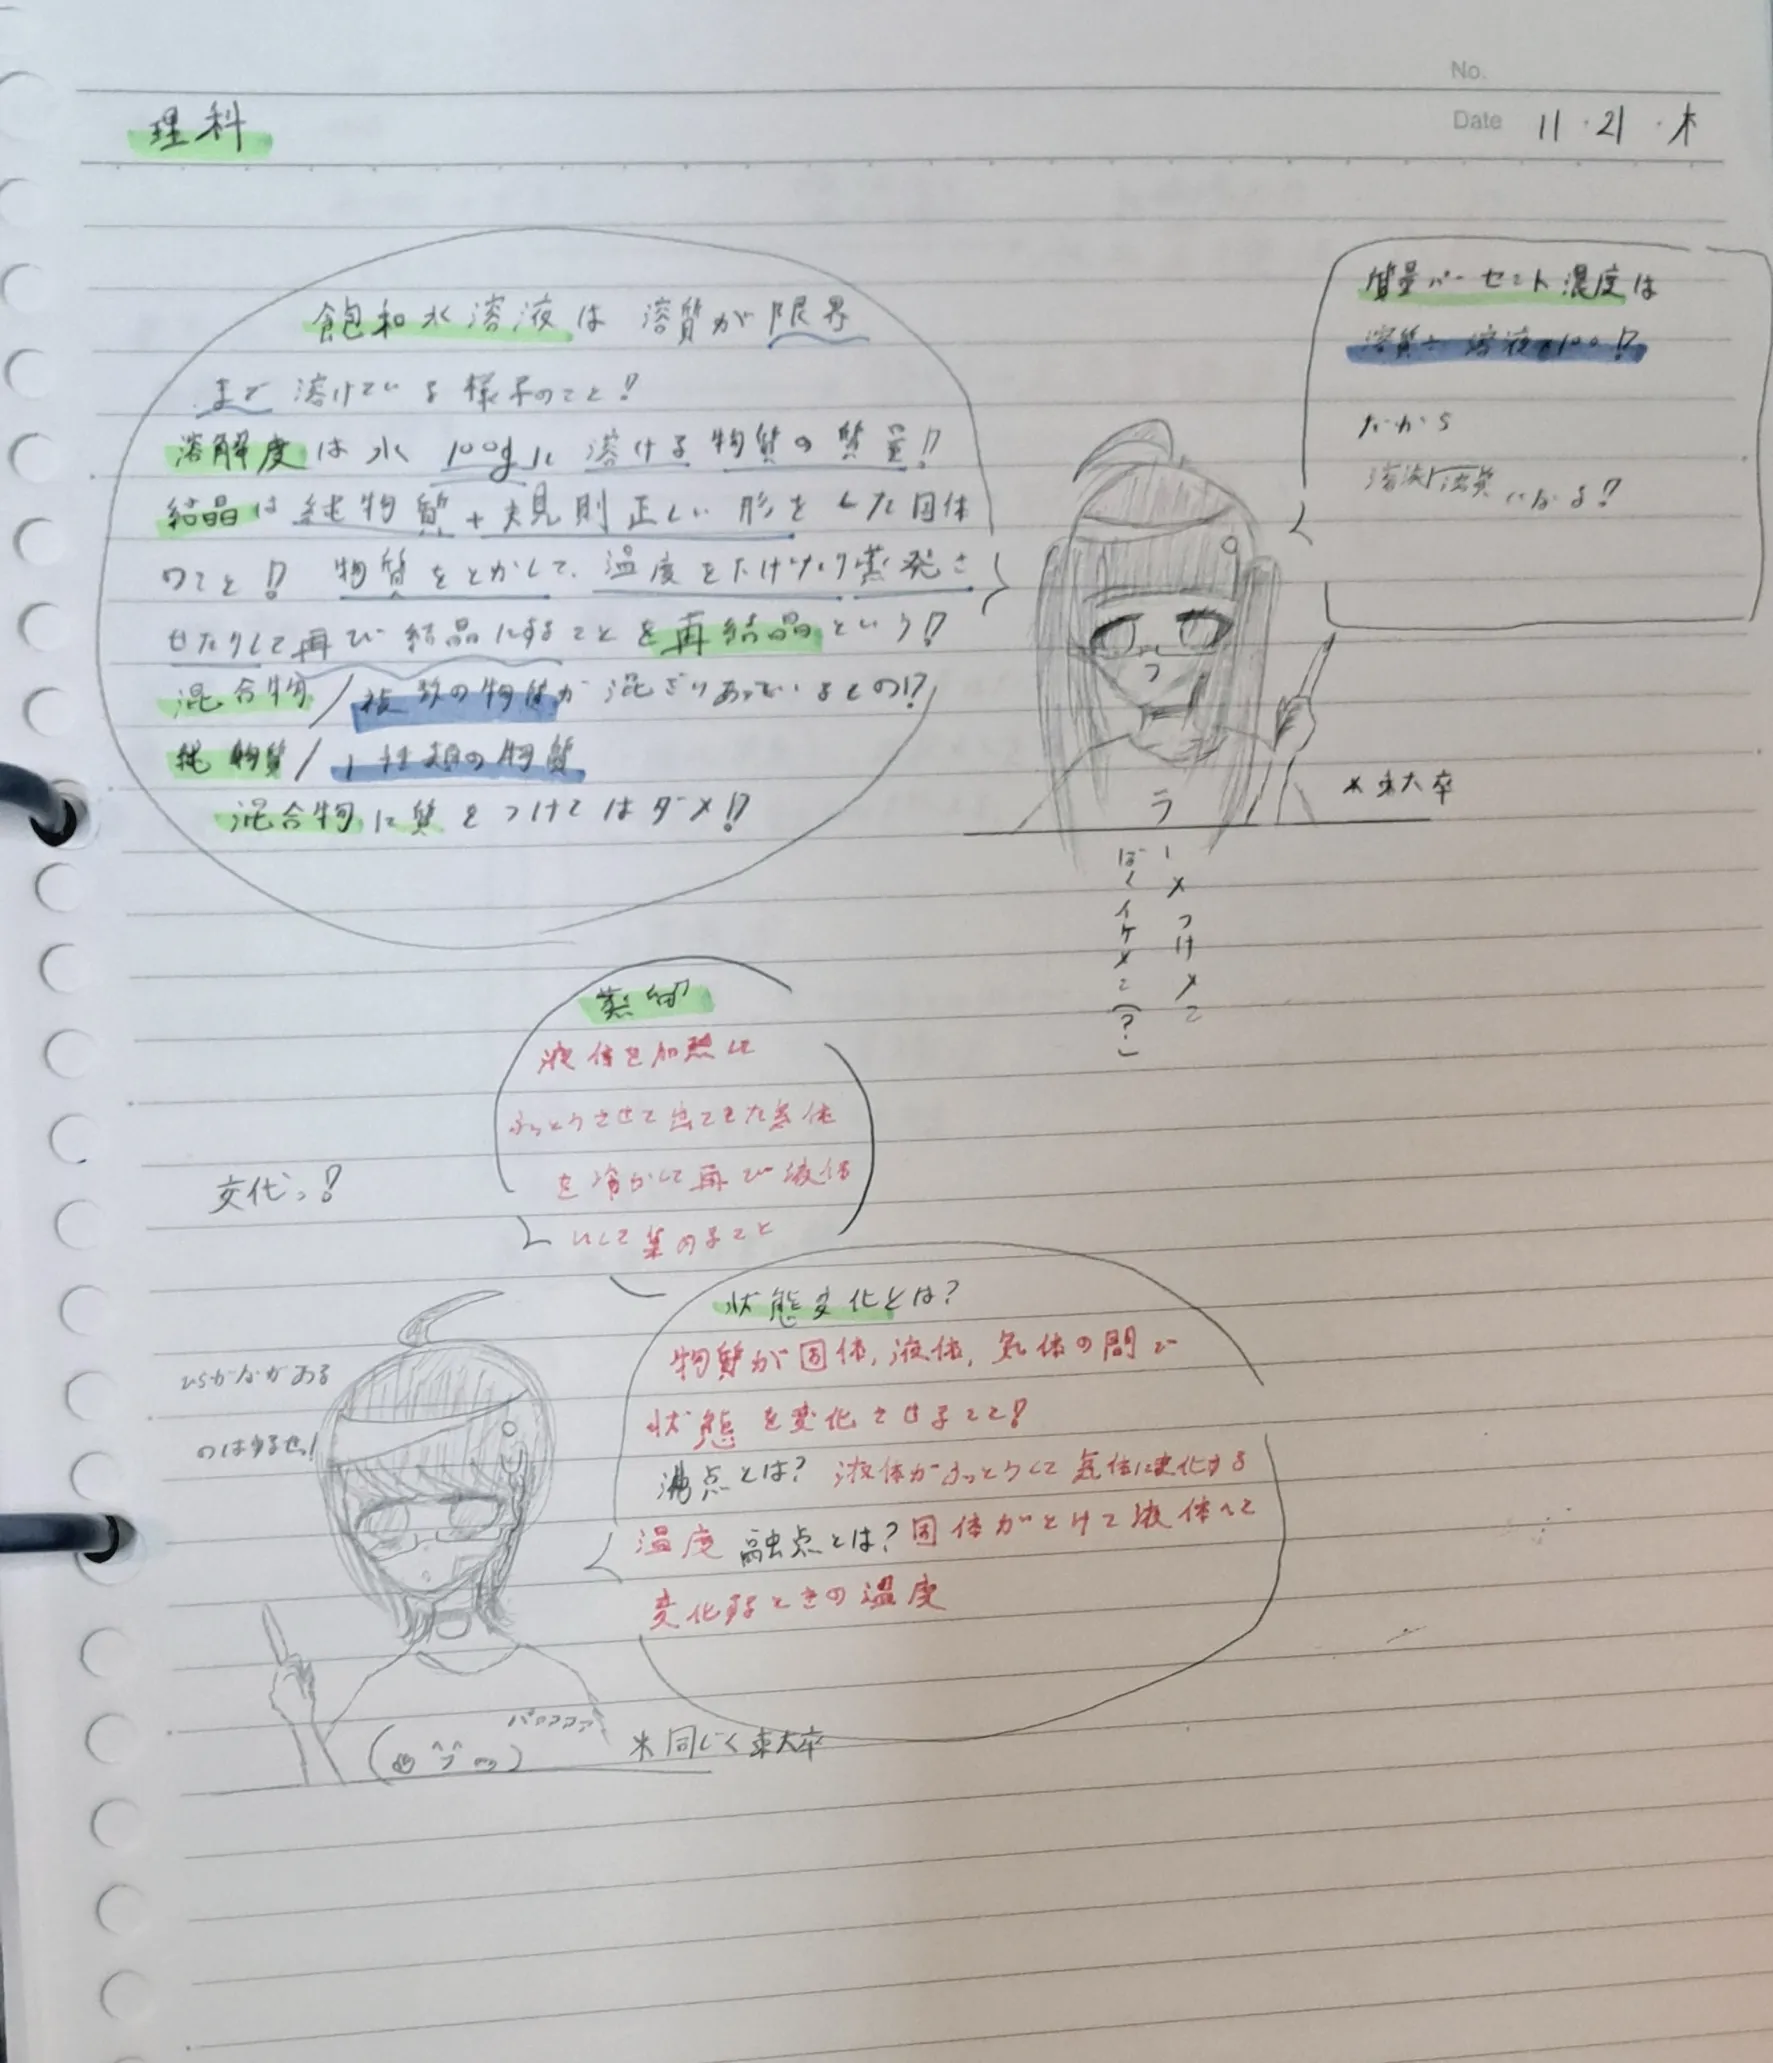 No.
Date 11・21・木
理科
飽和水溶液は 溶質が限界
まで 溶けている様子のこと!
溶解度は水 100gに溶ける物質の質量!!
結晶は純物質+規則正しい形をした固体
のこと!! 物質をとかして、温度を下げたり蒸発さ
せたりして再び結晶にすることを再結晶という!!
混合物/複数の物質が混ざりあっているもの!?
純物質/1種類の物質
混合物に質をつけてはダメ!!
質量パーセント濃度は
溶質÷溶液×100!?
だから
になる!?
※東大卒
ぼくイケメン(?)
蒸留
液体を加熱し
ふっとうさせて出てきた気体
を冷やして再び液体
にして集めること
交代っ!
状態変化とは?
物質が固体,液体,気体の間で
状態を変化させること!
沸点とは? 液体がふっとうして気体に変化する
温度 融点とは?固体がとけて液体へと
変化するときの温度
ひらがながある
のはゆるせ!
※同じく東大卒